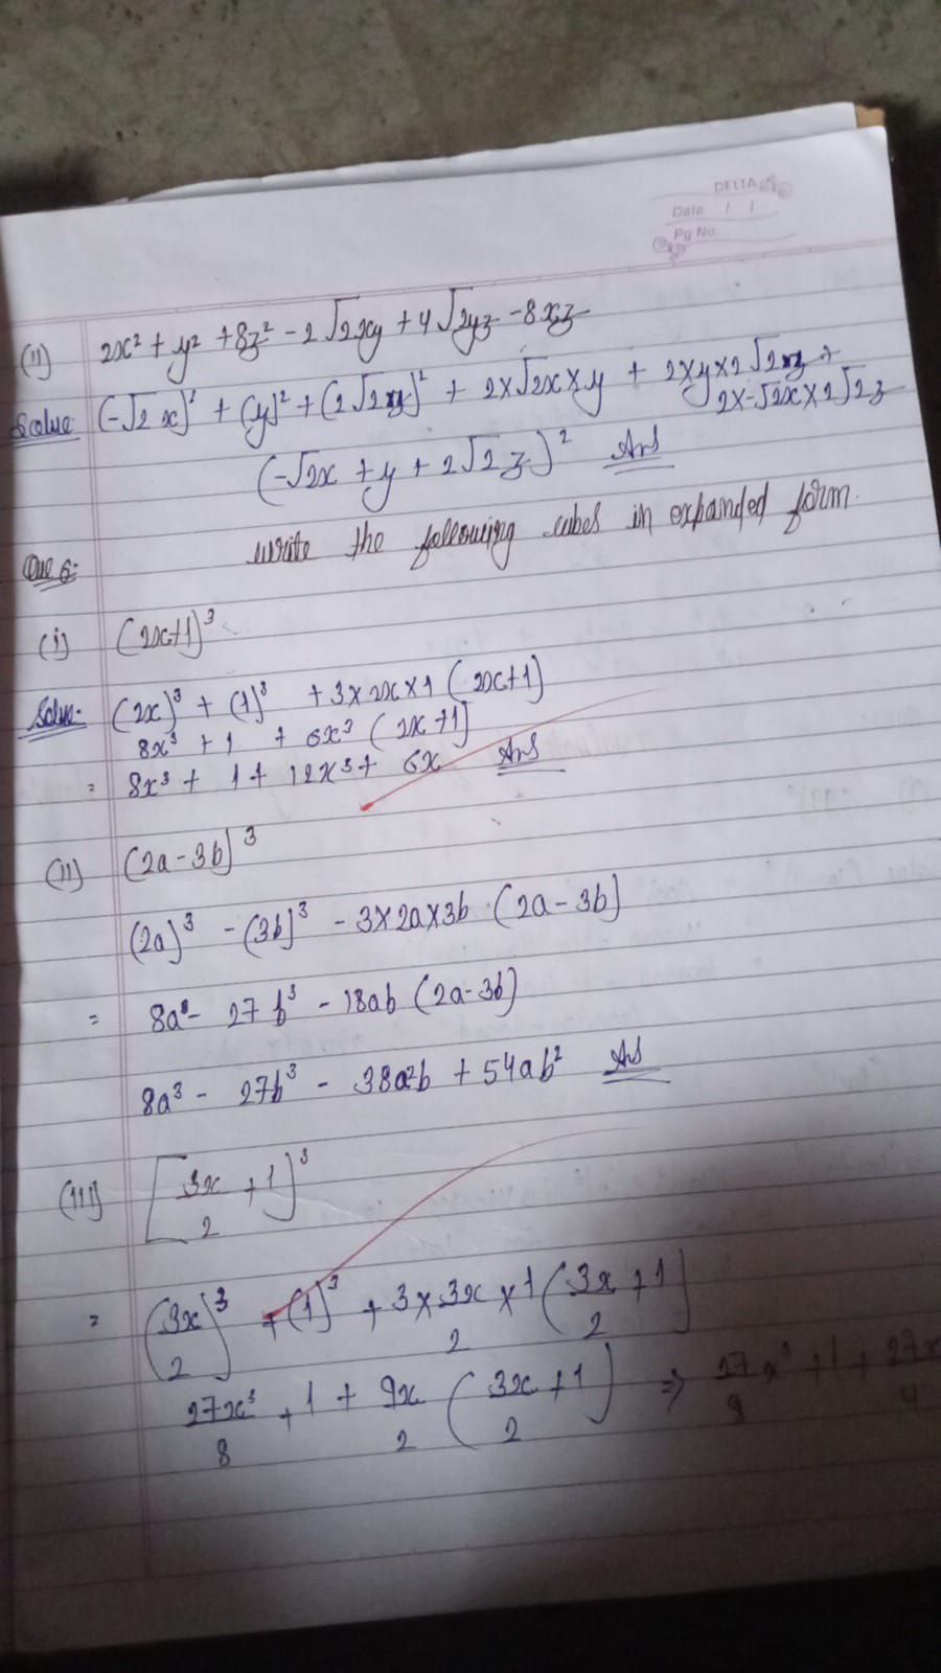 DELTA
Date / /
Pg No.
(ii) 2x² + y² + 8z² - 2√2xy + 4√2yz - 8xz
Solve (-√2 x)² + (y)² + (2√2 z)² + 2×√2x×y + 2×y×2√2z +
2×-√2x×2√2z
(-√2x + y + 2√2z)² Ans
Que 6:- write the following cubes in expanded form.
(i) (2x+1)³
Solve:- (2x)³ + (1)³ + 3×2x×1 (2x+1)
8x³ + 1 + 6x³ (2x+1)
= 8x³ + 1 + 12x³ + 6x Ans
(ii) (2a-3b)³
(2a)³ - (3b)³ - 3×2a×3b (2a-3b)
= 8a³ - 27b³ - 18ab (2a-3b)
8a³ - 27b³ - 38a²b + 54ab² Ans
(iii) [3x/2 + 1]³
= (3x/2)³ + (1)³ + 3×3x/2×1 (3x/2 + 1)
27x³/8 + 1 + 9x/2 (3x/2 + 1) ⇒ 27/8 x³ + 1 + 27x/4